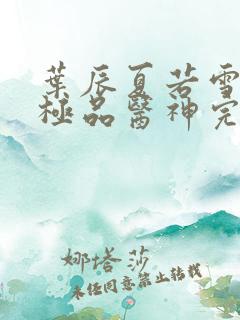 葉辰夏若雪
極品醫神完
娜塔莎
未經同意禁止轉載